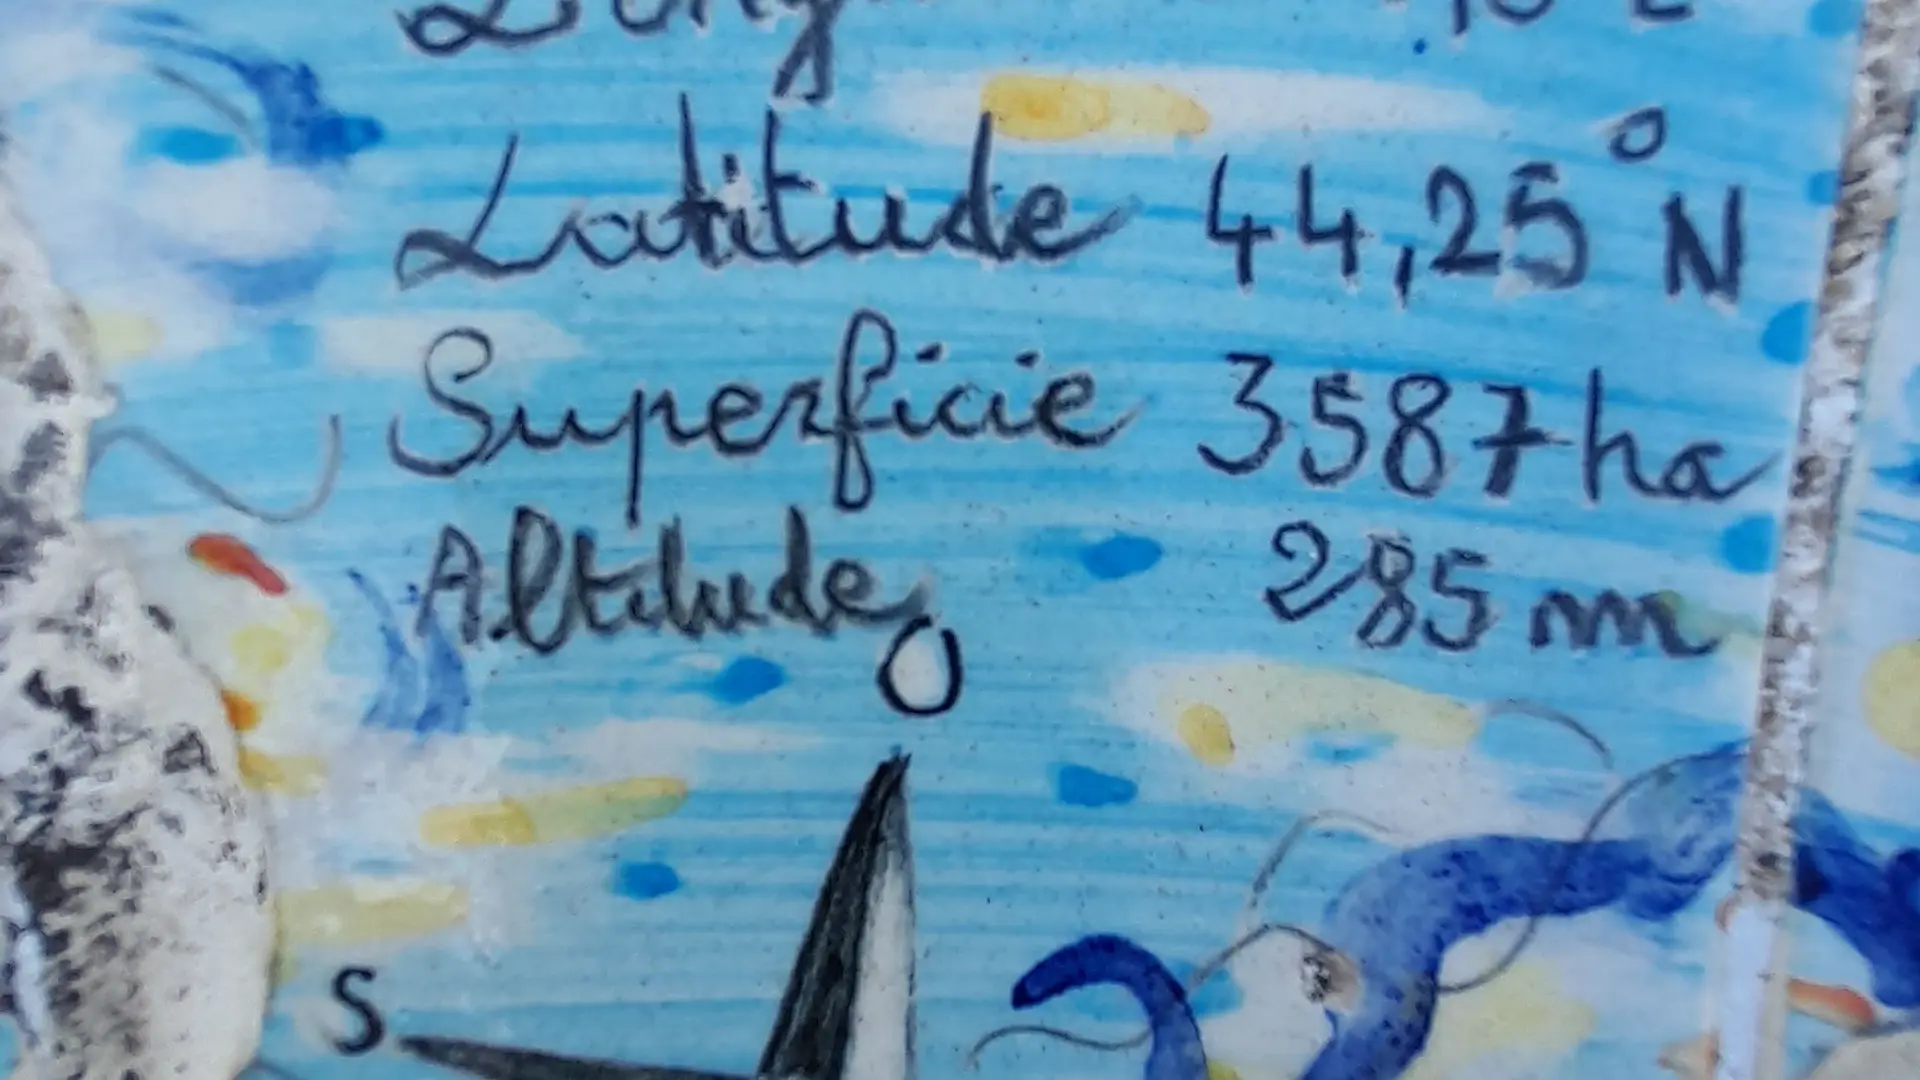 Latitude 44,25° N
Superficie 3587 ha
Altitude 285 m
O
S